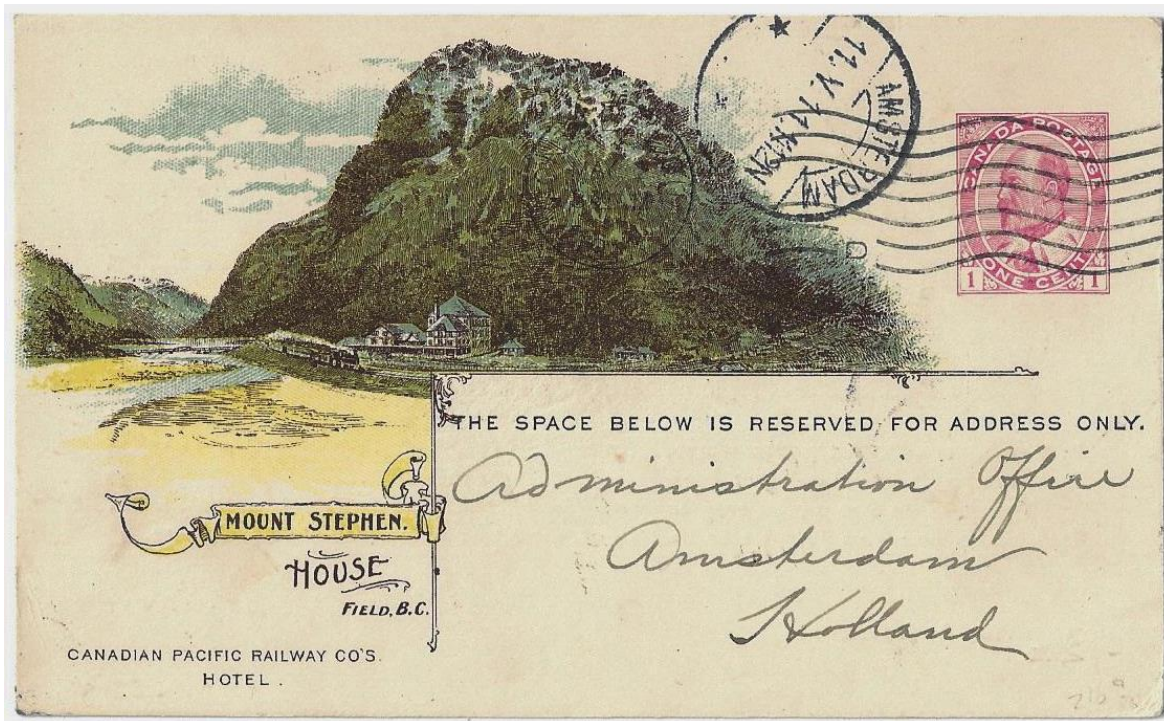 AMSTERDAM
11.V.11
CANADA POSTAGE
1 ONE CENT 1
THE SPACE BELOW IS RESERVED FOR ADDRESS ONLY.
Administration Office
Amsterdam
Holland
MOUNT STEPHEN.
HOUSE
FIELD, B.C.
CANADIAN PACIFIC RAILWAY CO'S.
HOTEL.